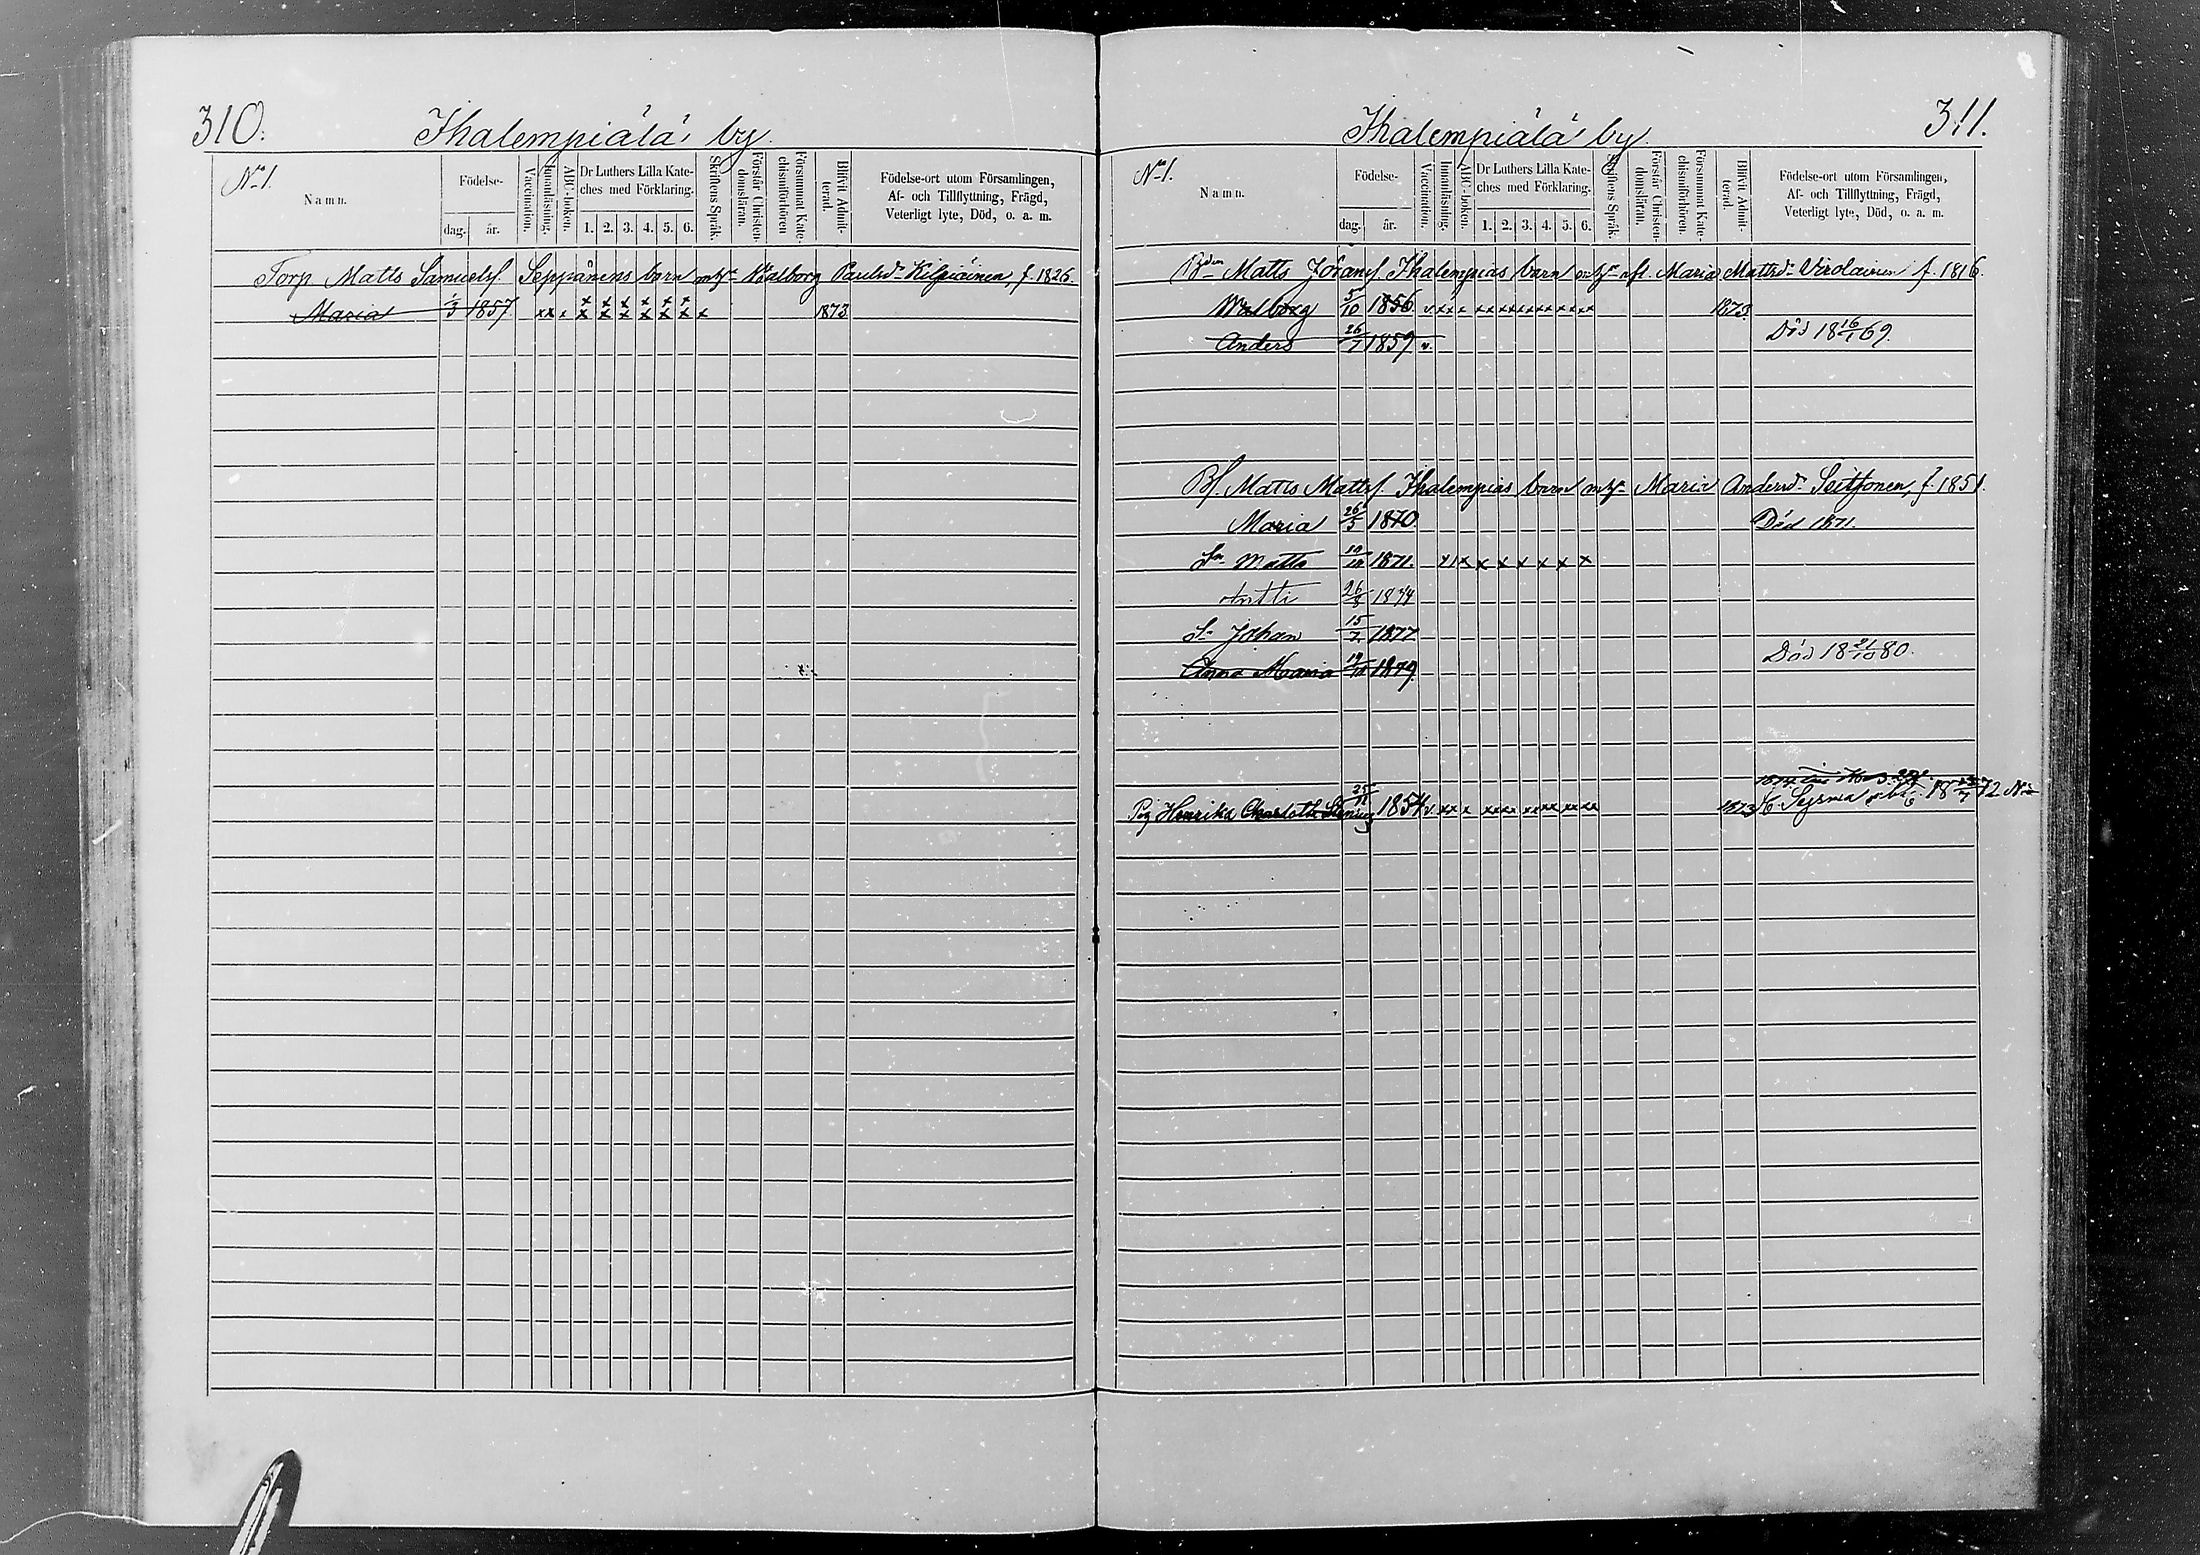 310.
Ihalempiälä by.
No 1.
Namn.
Födelse-
dag.
år.
Vaccination.
Innanläsning.
ABC-boken.
Dr Luthers Lilla Kate-
ches med Förklaring.
1. 2. 3. 4. 5. 6.
Skriftens Språk.
Förstår Christen-
domsläran.
Försummat Kate-
chismiförhören
Blifvit Admit-
terad.
Födelse-ort utom Församlingen,
Af- och Tillflyttning, Frägd,
Veterligt lyte, Död, o. a. m.
Torp. Matts Samuelsf. Seppänens barn m. h. Walborg Paulsd. Kilpiäinen, f. 1826.
Maria 1/3 1857. x x x x x x x x x x 1873.
x x x x x x
311.
Ihalempiälä by.
No 1.
Namn.
Födelse-
dag.
år.
Vaccination.
Innanläsning.
ABC-boken.
Dr Luthers Lilla Kate-
ches med Förklaring.
1. 2. 3. 4. 5. 6.
Skriftens Språk.
Förstår Christen-
domsläran.
Försummat Kate-
chismiförhören.
Blifvit Admit-
terad.
Födelse-ort utom Församlingen,
Af- och Tillflyttning, Frägd,
Veterligt lyte, Död, o. a. m.
Bdn Matts Johansf. Ihalempias barn m. h. afl. Maria Mattsd. Virolainen f. 1816.
Walborg 5/10 1856. v x x x xx xx xx xx xx xx 1873.
Anders 26/7 1859 v. Död 18 16/1 69.
Bf. Matts Mattsf. Ihalempias barn m. h. Maria Andersd. Seitsonen, f. 1851.
Maria 26/5 1870. Död 1871.
Sn Matts 1871. x x x x x x x
Antti 26/8 1874
Sn Johan 15/7 1877
Anna Maria 1879. Död 18 21/10 80.
Pig. Henrika Charlotta 1854 v. xx x xx xx xx xx xx 1873